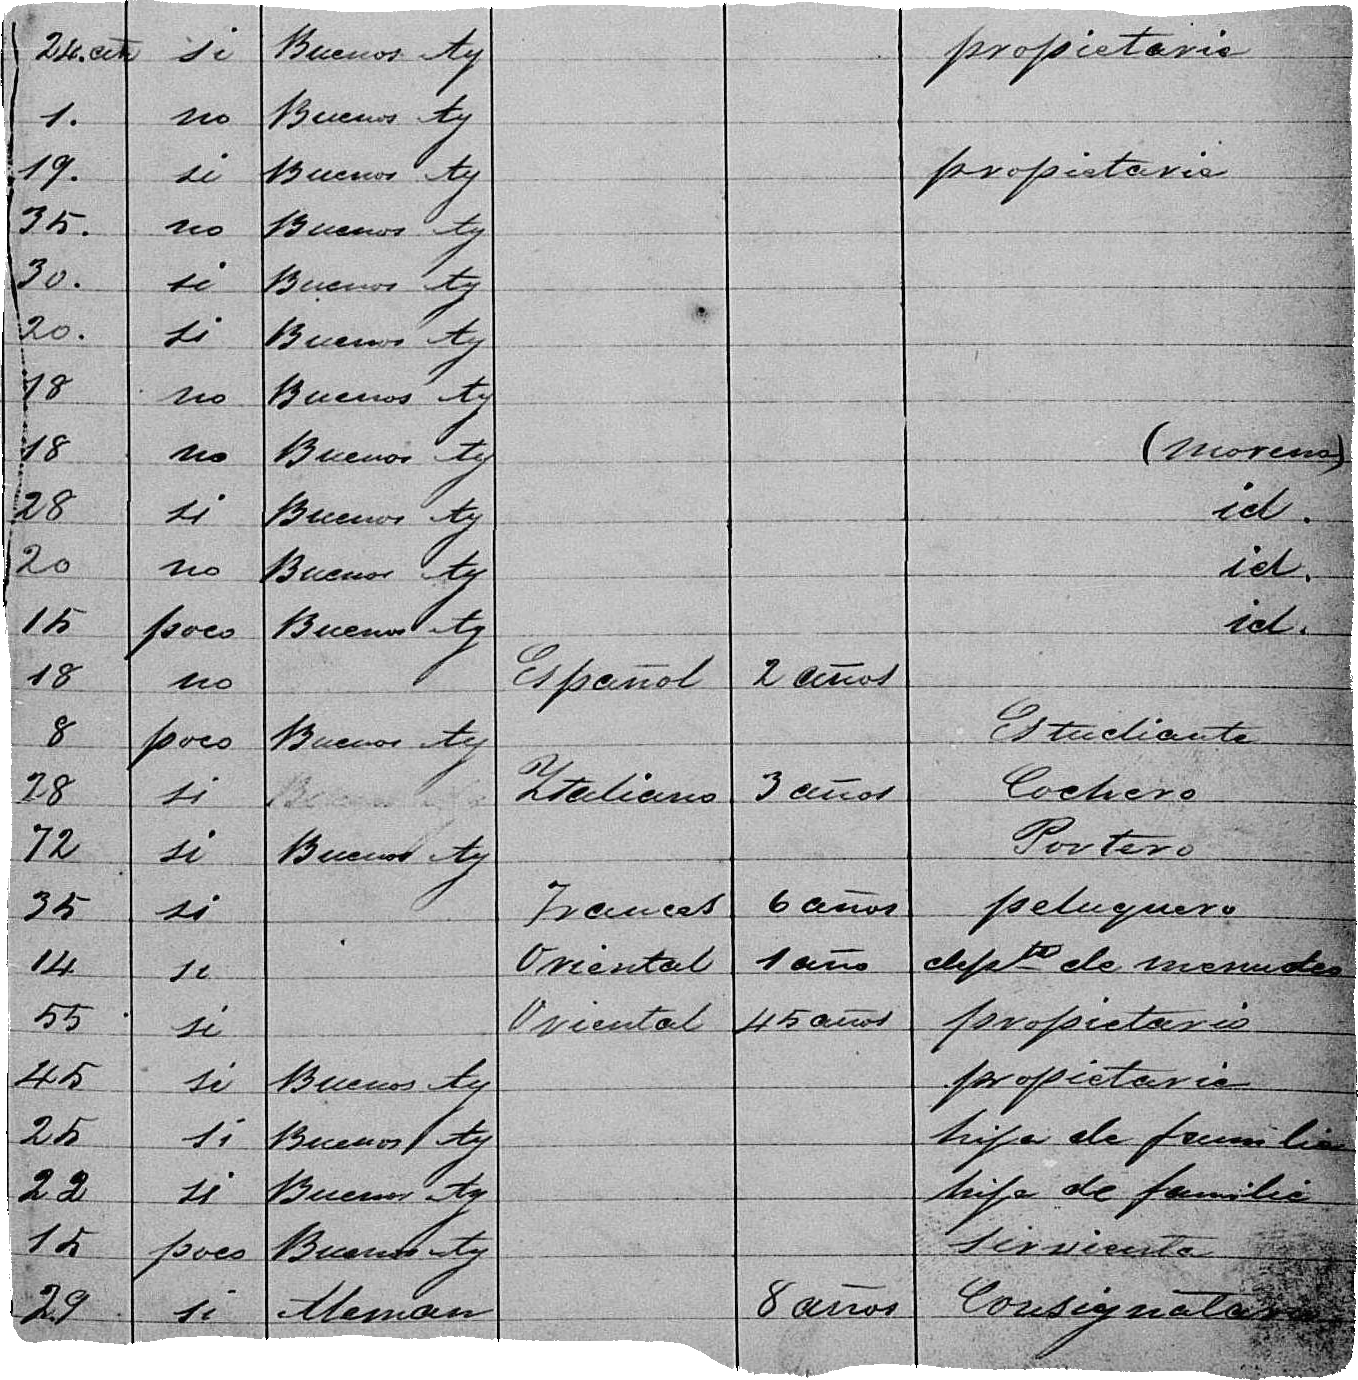 24. si Buenos Ay propietaria
1. no Buenos Ay
19. si Buenos Ay propietaria
35. no Buenos Ay
30. si Buenos Ay
20. si Buenos Ay
18 no Buenos Ay
18 no Buenos Ay (moreno)
28 si Buenos Ay id.
20 no Buenos Ay id.
15 poco Buenos Ay id.
18 no Español 2 años
8 poco Buenos Ay Estudiante
28 si Ytaliano 3 años Cochero
72 si Buenos Ay Portero
35 si Frances 6 años peluquero
14 si Oriental 1 año depte de menudeo
55 si Oriental 45 años propietario
45 si Buenos Ay propietaria
25 si Buenos Ay hija de familia
22 si Buenos Ay hija de familia
15 poco Buenos Ay sirvienta
29 si Aleman 8 años Consignatario